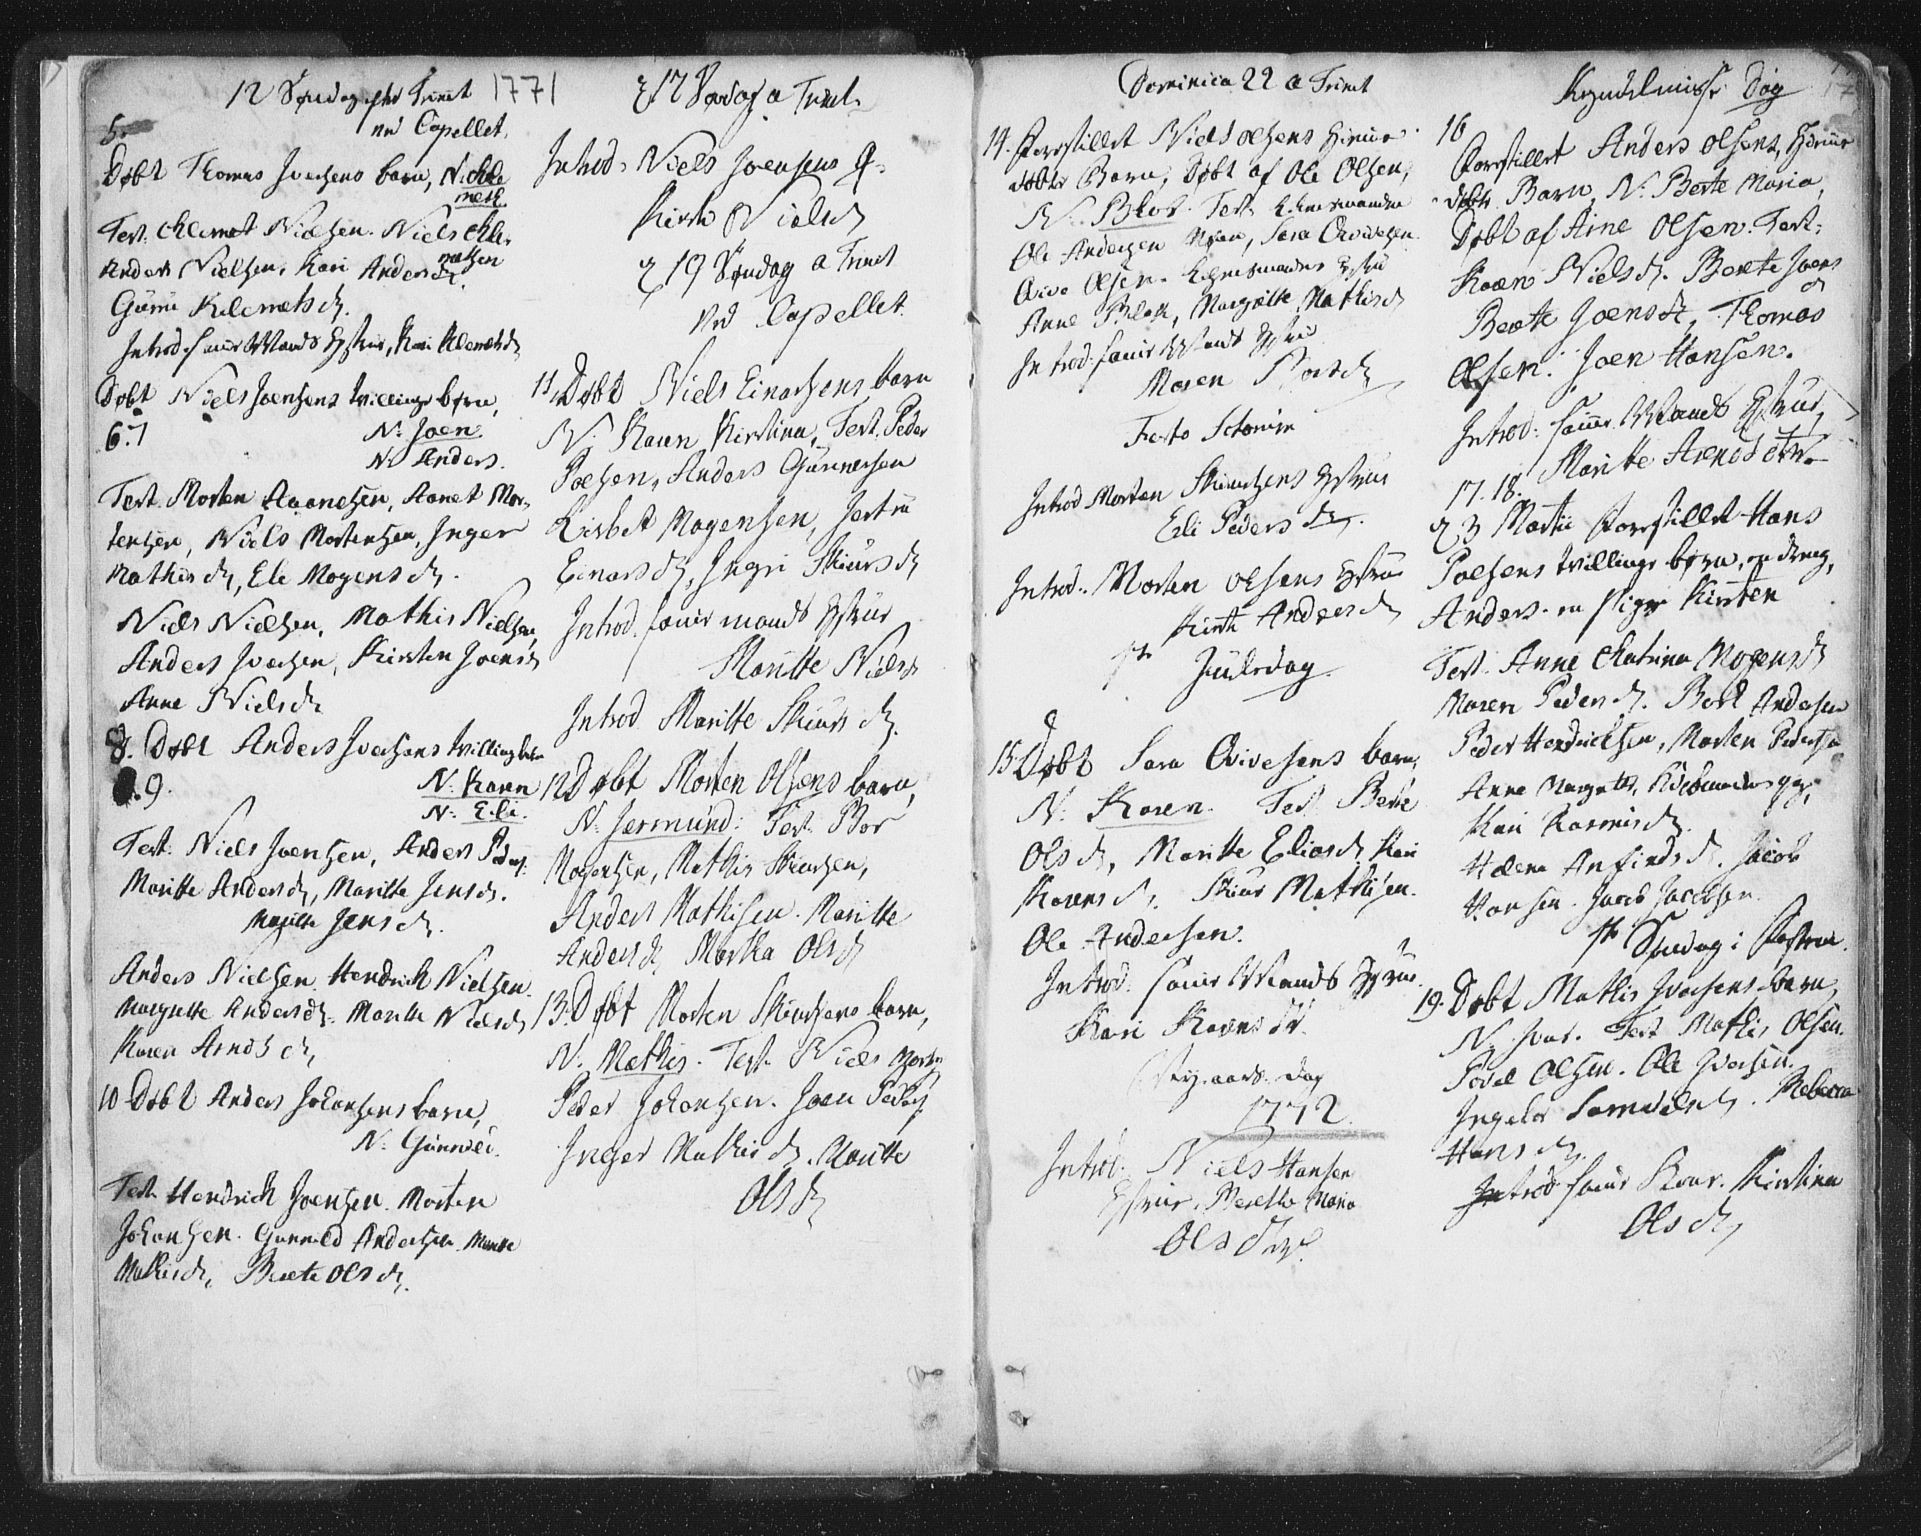 12 Søndag efter Trinit 1771
ved Capellet.
5.
Døbt Thomas Iversens barn, N. Kle
metz.
Test. Klemet Nielsen. Niels Kle
metsen
Anders Nielsen, Kari Andersd.
Guru Klemetsd.
Introd. samme Mands Hustrue, Kari Klemetsd
Døbt Niels Joensens tvillinge børn,
6.7 N. Joen
N. Anders.
Test. Morten Aagnesen, Mor-
tensen, Niels Mortensen, Inger
Mathisd, Eli Mogensd.
Niels Nielsen, Mathis Nielsen,
Anders Iversen, Kirsten Joensd
Anne Nielsd
8. Døbt Anders Iversens tvilling børn
9. N. Karen
N. Eli.
Test. Niels Joensen, Anders Peders.
Maritte Andersd, Maritte Jensd.
Maritte Jensd.
Anders Nielsen. Hendrich Nielsen.
Margrette Andersd. Maritte Nielsd
Karen Arndsd,
10 Døbt Anders Johansens barn,
N. Gunnild.
Test. Hendrich Joensen. Morten
Johansen. Gunnild Andersen. Maritte
Mathisd, Berete Olsd.
17 Søndag a Trinit.
Introd. Niels Joensens H.
Kirsti Nielsd
19 Søndag a Trinit
ved Capellet.
11. Døbt Niels Einersens barn
N. Karen Kirstina, Test. Peder
Poelsen, Anders Gunnersen
Lisbet Mogensen, Jertru
Einarsd, Ingri Skiursd
Introd. samme mands Hustrue
Maritte Nielsd
Introd Maritte Skiursd.
12 Døbt Morten Olsens barn,
N. Jermund: Test. Bor
Mogensen, Mathis Skiursen,
Anders Mathisen. Maritte
Andersd, Martha Olsd
13. Døbt Morten Skiursens barn,
N. Mathis. Test. Niels Morten
Peder Johansen. Joen Peders
Inger Mathisd. Maritte
Olsd
Dominica 22 a Trinit
14. Forestillet Niels Olsens hiemme
døbte Barn, Døbt af Ole Olsen,
N. Test.
Ole Andersen Moen, Sara Ovivesen
Ovive Olsen. Hustrue
Anne, Margrette Mathisd
Introd. samme Mands Hustrue
Maren
Festo
Introd Morten Skiursens Hustrue
Eli Pedersd.
Introd. Morten Olsens Hustrue
Kirsti Andersd
1te Juledag.
15. Døbt Sara Ovivesens barn,
N. Karen. Test. Berte
Olsd, Maritte Eliasd, Kari
Karensd, Skiur Mathisen.
Ole Andersen.
Introd. samme Mands Hustrue.
Kari
Nyaars dag
1772
Introd. Niels Hansen
Hustrue, Beretho Maria
Olsd.
Kyndelmisse Dag
16
Forestillet Anders Olsens, hiemme
døbte Barn, N. Berte Maria,
Døbt af Arne Olsen. Test.
Karen Nielsd. Berete Joens
d
Berete Joensd, Thomas
Olsen. Joen Hansen.
Introd. samme Mands Hustrue,
Maritte Arndsdtr.
17.18.
d 3 Martii Forestillet Hans
Poelsens tvillinge børn, en dreng,
Anders. en Pige Kirsten
Test. Anne Chatrina Mogensd
Maren Pedersd. Berit Andersen
Peder Hendrichsen, Morten Pedersen
Anne Margrette,
Kari Rasmusd.
Helena Anfindsd. Jacob
Hansen. Jacob Jacobsen.
1te Søndag i Fasten.
19. Døbt Mathis Iversens barn,
N. Ivar. Test Mathis Olsen.
Povel Olsen. Ole Iversen.
Ingebor Samuelsd. Rebecca
Hansd.
Introd samme Kone. Kirstina
Olsd